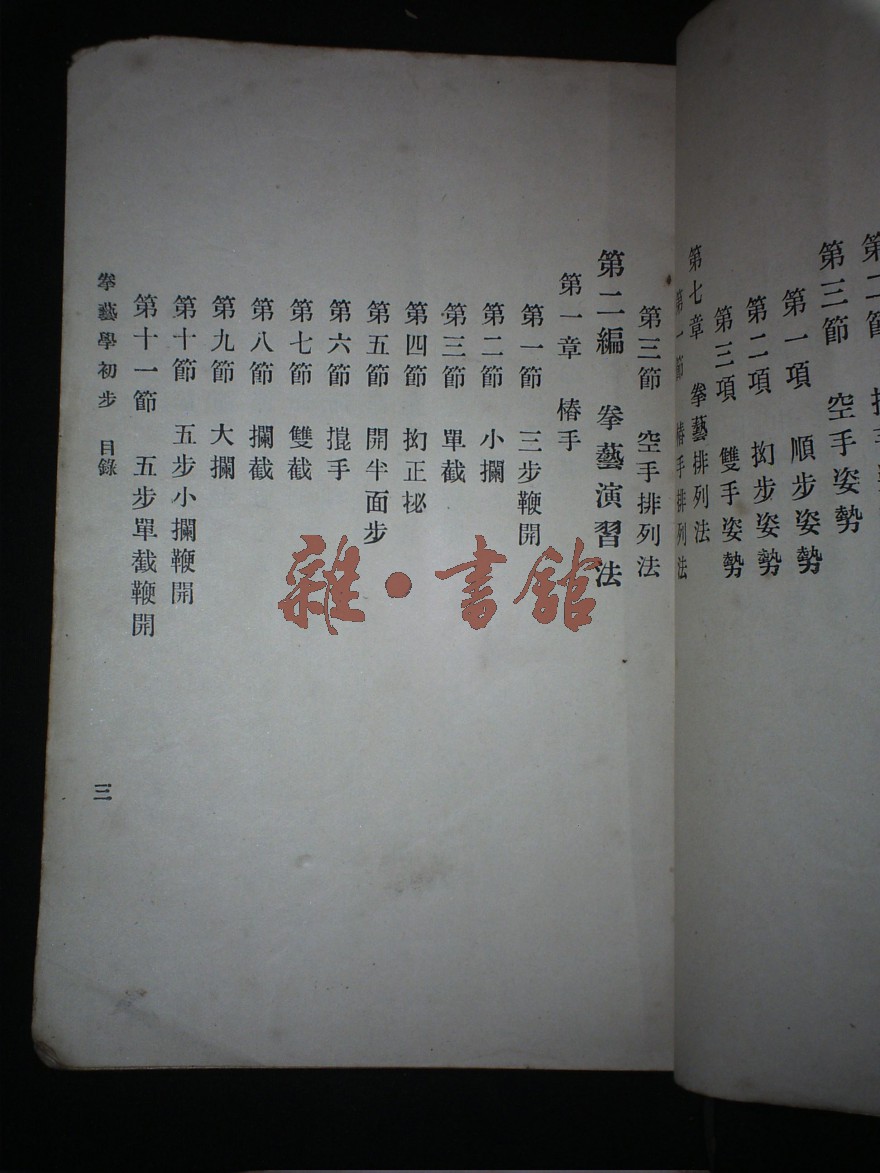 第二節
第三節 空手姿勢
第一項 順步姿勢
第二項 拗步姿勢
第三項 雙手姿勢
第七章 拳藝排列法
第一節 樁手排列法
第三節 空手排列法
第二編 拳藝演習法
第一章 樁手
第一節 三步鞭開
第二節 小攔
第三節 單截
第四節 拗正柲
第五節 開半面步
第六節 掍手
第七節 雙截
第八節 攔截
第九節 大攔
第十節 五步小攔鞭開
第十一節 五步單截鞭開
拳藝學初步 目錄
三
雜·書館